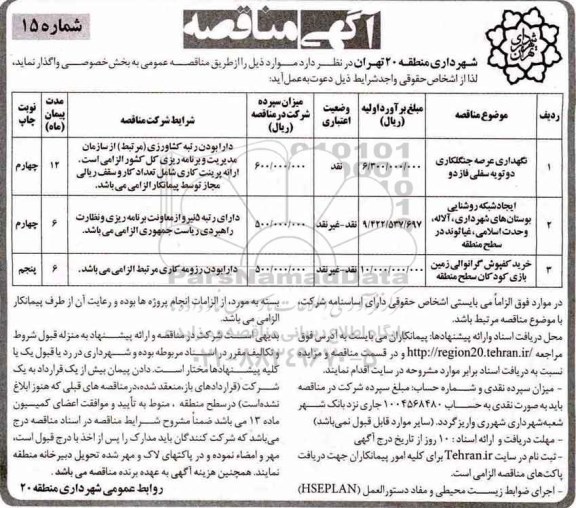 آگهی مناقصه
شماره ۱۵
شهرداری تهران
شهرداری منطقه ۲۰ تهران در نظر دارد موارد ذیل را از طریق مناقصه عمومی به بخش خصوصی واگذار نماید،
لذا از اشخاص حقوقی واجد شرایط ذیل دعوت به عمل آید:
ردیف
موضوع مناقصه
مبلغ برآورد اولیه (ریال)
وضعیت اعتباری
میزان سپرده شرکت در مناقصه (ریال)
شرایط شرکت مناقصه
مدت پیمان (ماه)
نوبت چاپ
۱
نگهداری عرصه جنگلکاری
دوتویه سفلی فاز دو
۶/۳۰۰/۰۰۰/۰۰۰
نقد
۶۰۰/۰۰۰/۰۰۰
دارا بودن رتبه کشاورزی (مرتبط) از سازمان
مدیریت و برنامه ریزی کل کشور الزامی است.
ارائه پرینت کاری شامل تعداد کار و سقف ریالی
مجاز توسط پیمانکار الزامی می‌باشد.
۱۲
چهارم
۲
ایجاد شبکه روشنایی
بوستان‌های شهرداری، آلاله،
وحدت اسلامی، غیاثوند در
سطح منطقه
۹/۴۲۲/۵۳۷/۶۹۷
نقد-غیر نقد
۵۰۰/۰۰۰/۰۰۰
دارای رتبه ۵نیرو از معاونت برنامه ریزی و نظارت
راهبردی ریاست جمهوری الزامی می‌باشد.
۶
چهارم
۳
خرید کفپوش گرانوالی زمین
بازی کودکان سطح منطقه
۱۰/۰۰۰/۰۰۰/۰۰۰
نقد-غیر نقد
۵۰۰/۰۰۰/۰۰۰
دارا بودن رزومه کاری مرتبط الزامی می‌باشد.
۶
پنجم
در موارد فوق الزاماً می بایستی اشخاص حقوقی دارای اساسنامه شرکت،
با موضوع مناقصه مرتبط باشد.
محل دریافت اسناد وارائه پیشنهادها: پیمانکاران می بایست به آدرس فوق
مراجعه http://region20.tehran.ir/ و در قسمت مناقصه و مزایده
نسبت به دریافت اسناد برابر موارد مشروحه در سایت اقدام نمایند.
- میزان سپرده نقدی و شماره حساب: مبلغ سپرده شرکت در مناقصه
باید به صورت نقدی به حساب ۱۰۰۴۵۶۸۴۸۰ جاری نزد بانک شهر
شعبه شهرداری شهرری واریز گردد. (سایر موارد قابل قبول نمی‌باشد)
- مهلت دریافت و ارائه اسناد: ۱۰ روز از تاریخ درج آگهی
- ثبت نام در سایت Tehran.ir برای کلیه امور پیمانکاران جهت دریافت
پاکت‌های مناقصه الزامی است.
- اجرای ضوابط زیست محیطی و مفاد دستورالعمل (HSEPLAN)
بسته به مورد، از الزامات انجام پروژه ها بوده و رعایت آن از طرف پیمانکار
الزامی می باشد.
بدیهی است شرکت در مناقصه و ارائه پیشنهاد به منزله قبول شروط
و تکالیف مقرر در اسناد مربوطه بوده و شهرداری در رد یا قبول یک یا
کلیه پیشنهادها مختار است. دادن پیمان بیش از یک قرارداد به یک
شرکت (قراردادهای باز، منعقد شده، درمناقصه های قبلی که هنوز ابلاغ
نشده‌است) در سطح منطقه ، منوط به تأیید و موافقت اعضای کمیسیون
ماده ۱۳ می باشد ضمناً مشروح شرایط مناقصه در اسناد مناقصه درج
می‌باشد که شرکت کنندگان باید مدارک را پس از اخذ با درج قبول است،
مهر و امضاء نموده و در پاکتهای لاک و مهر شده تحویل دبیرخانه منطقه
نمایند. همچنین هزینه آگهی به عهده برنده مناقصه می باشد .
روابط عمومی شهرداری منطقه ۲۰
ParsNamadData